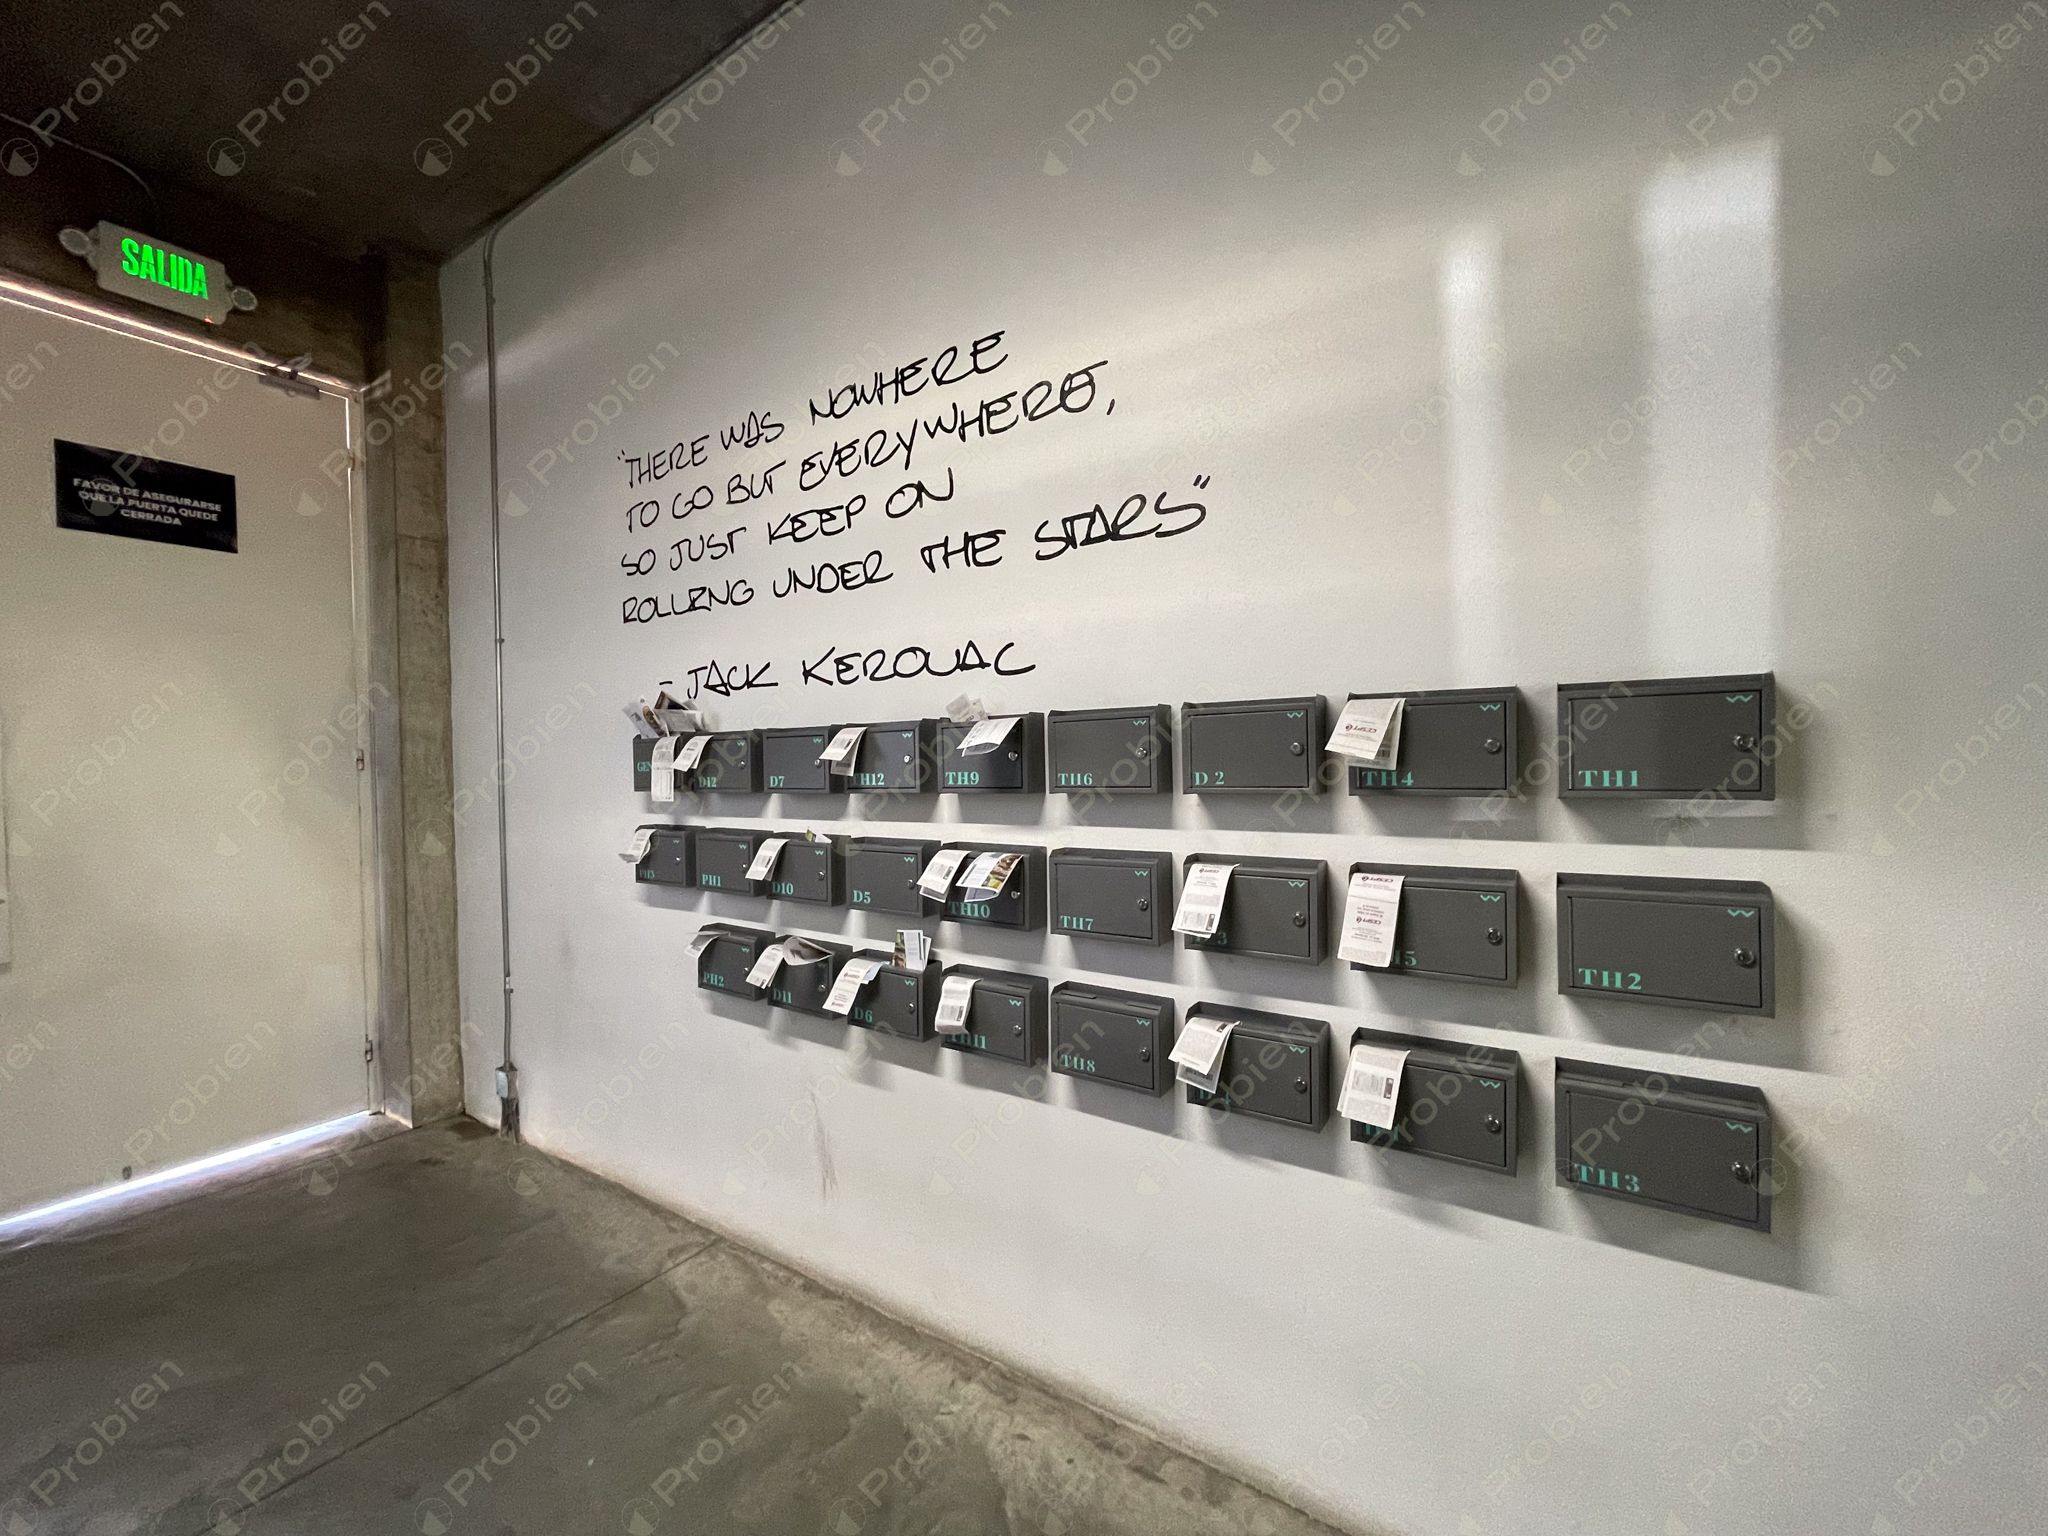 SALIDA
FAVOR DE ASEGURARSE
QUE LA PUERTA QUEDE
CERRADA
"THERE WAS NOWHERE
TO GO BUT EVERYWHERE,
SO JUST KEEP ON
ROLLING UNDER THE STARS"
- JACK KEROUAC
D12
D7
TH12
TH9
TH6
D 2
TH4
TH1
PH3
PH1
D10
D5
TH10
TH7
TH2
PH2
D11
D6
TH11
TH8
TH3
CESPT
Probien